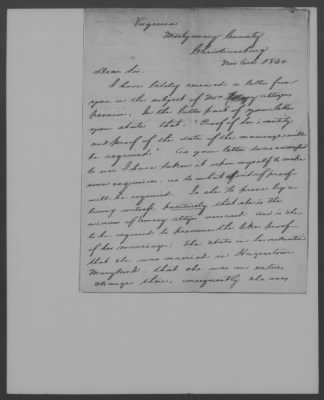 Virginia
Montgomery County
Christiansburg
Nov 6th 1840
Dear Sir.
I have lately received a letter from
you on the subject of Mrs
pension. In the latter part of your letter
you state that "Proof of her identity
and proof of the date of the marriage will
be required." As your letter was
to me I have taken it upon myself to make
some enquiries as to what of proof
will be required. Is she to prove by a
living witness, positively that she is the
widow of or is she
to be required to procure the like proof
of her marriage. She states in her declaration
that she was married in Hagerstown
Maryland. that she was an entire
stranger there, consequently she was